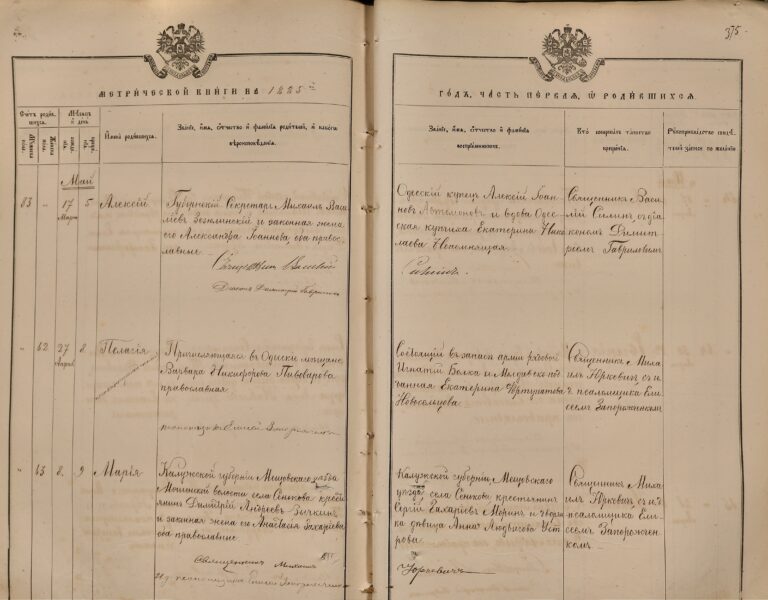 375.
МЕТРИЧЕСКОЙ КНИГИ НА 1885й
ГОДЪ, ЧАСТЬ ПЕРВАЯ, Ѡ РОДИВШИХСЯ.
Счетъ родив-
шихся.
Мужеска
пола.
Женска
пола.
Мѣсяцъ
и день
рожде-
нія.
креще-
нія.
Имена родившихся.
Званіе, имя, отчество и фамилія родителей, и какого
вѣроисповѣданія.
Званіе, имя, отчество и фамилія
воспріемниковъ.
Кто совершалъ таинство
крещенія.
Рукоприкладство свидѣ-
телей записи по желанію
Май
83
"
17
5
Алексій
Губернскій Секретарь Михаилъ Васи-
ліевъ
и законная жена
его Александра Іоаннова, оба право-
славные
Священникъ Василій
Діаконъ Димитрій Гавриловъ
Одесскій купецъ Алексій Іоан-
новъ Автомоновъ и вдова Одес-
ская купчиха Екатерина Нико-
лаева Непомнящая.
Священникъ Васи-
лій Силинъ, съ діа-
кономъ Димит-
ріемъ Гавриловымъ
"
62
27
8.
Пелагія
Причисляющаяся въ Одесскіе мѣщане
Варвара Никифорова Пивоварова
православная
псаломщикъ Елисей
Состоящій въ запасѣ арміи рядовой
Игнатій Волка и Молдавско под-
данная Екатерина
Новосельцова
Священникъ Миха-
илъ Юркевичъ съ и.
д. псаломщика Ели-
сеемъ Запороженкомъ
"
63
8.
9
Марія
Калужской губерніи Мещовскаго уѣзда
Мошинской волости села Сенькова кресть-
янинъ Димитрій Андреевъ Зичкинъ
и законная жена его Анастасія Захаріева
оба православные
Священникъ Михаилъ
И. д. псаломщика Елисей
Калужской губерніи Мещовскаго
уѣзда, села Сенькова крестьянинъ
Сергій Захаріевъ Моринъ и дворян-
ка дѣвица Анна Людвигова Уст-
рова.
Юркевичъ
Священникъ Миха-
илъ Юркевичъ съ и. д.
псаломщика Ели-
сеемъ Запорожен-
комъ